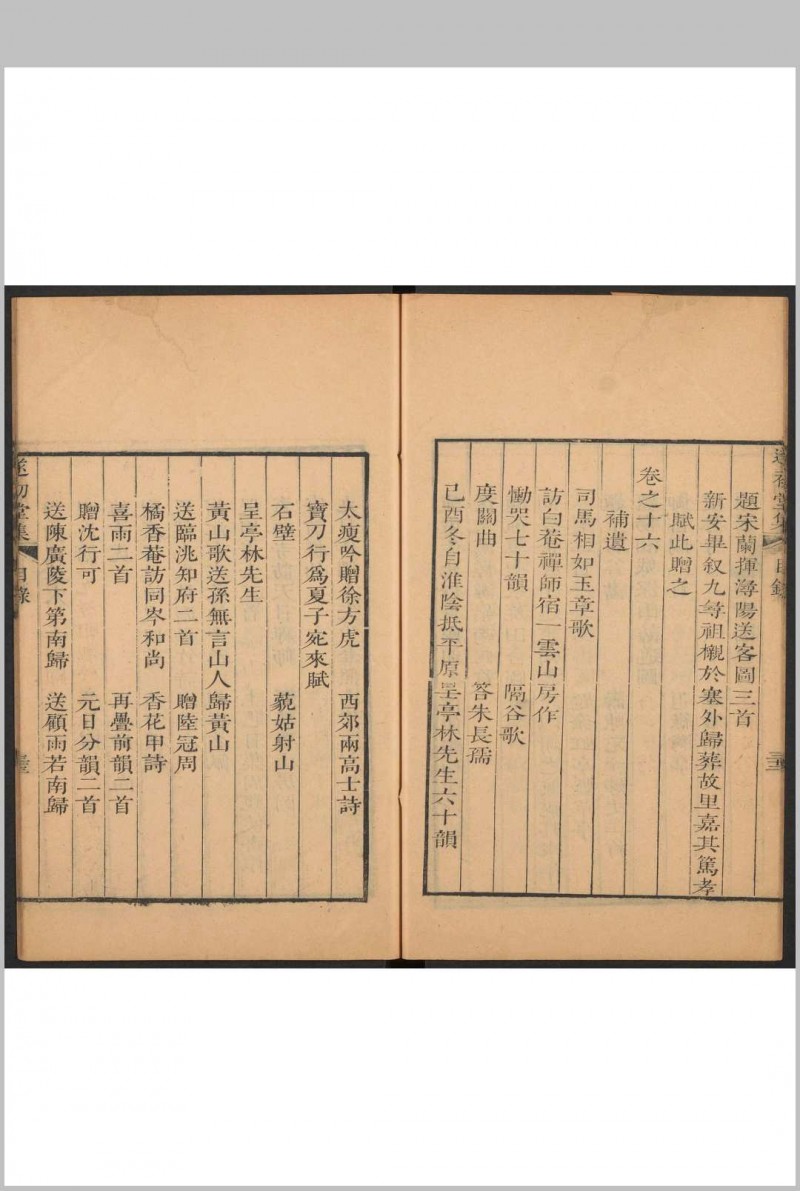 遂初堂集 目錄
題宋蘭揮潯陽送客圖三首
新安畢叙九尋祖櫬於塞外歸葬故里嘉其篤孝
賦此贈之
卷之十六
補遺
司馬相如玉章歌
訪白菴禪師宿一雲山房作
慟哭七十韻 隔谷歌
度關曲 答朱長孺
己酉冬自淮陰抵平原呈亭林先生六十韻
太瘦吟贈徐方虎 西郊兩高士詩
寶刀行爲夏子宛來賦
石壁 藐姑射山
呈亭林先生
黃山歌送孫無言山人歸黃山
送臨洮知府二首 贈陸冠周
橘香菴訪同岑和尚 香花甲詩
喜雨二首 再疊前韻二首
贈沈行可 元日分韻二首
送陳廣陵下第南歸 送顧雨若南歸
遂初堂集 目錄